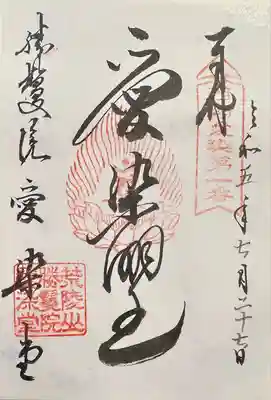 奉拝
令和五年七月二十七日
愛染明王
勝鬘院 愛染堂
荒陵山
勝鬘院
愛染堂